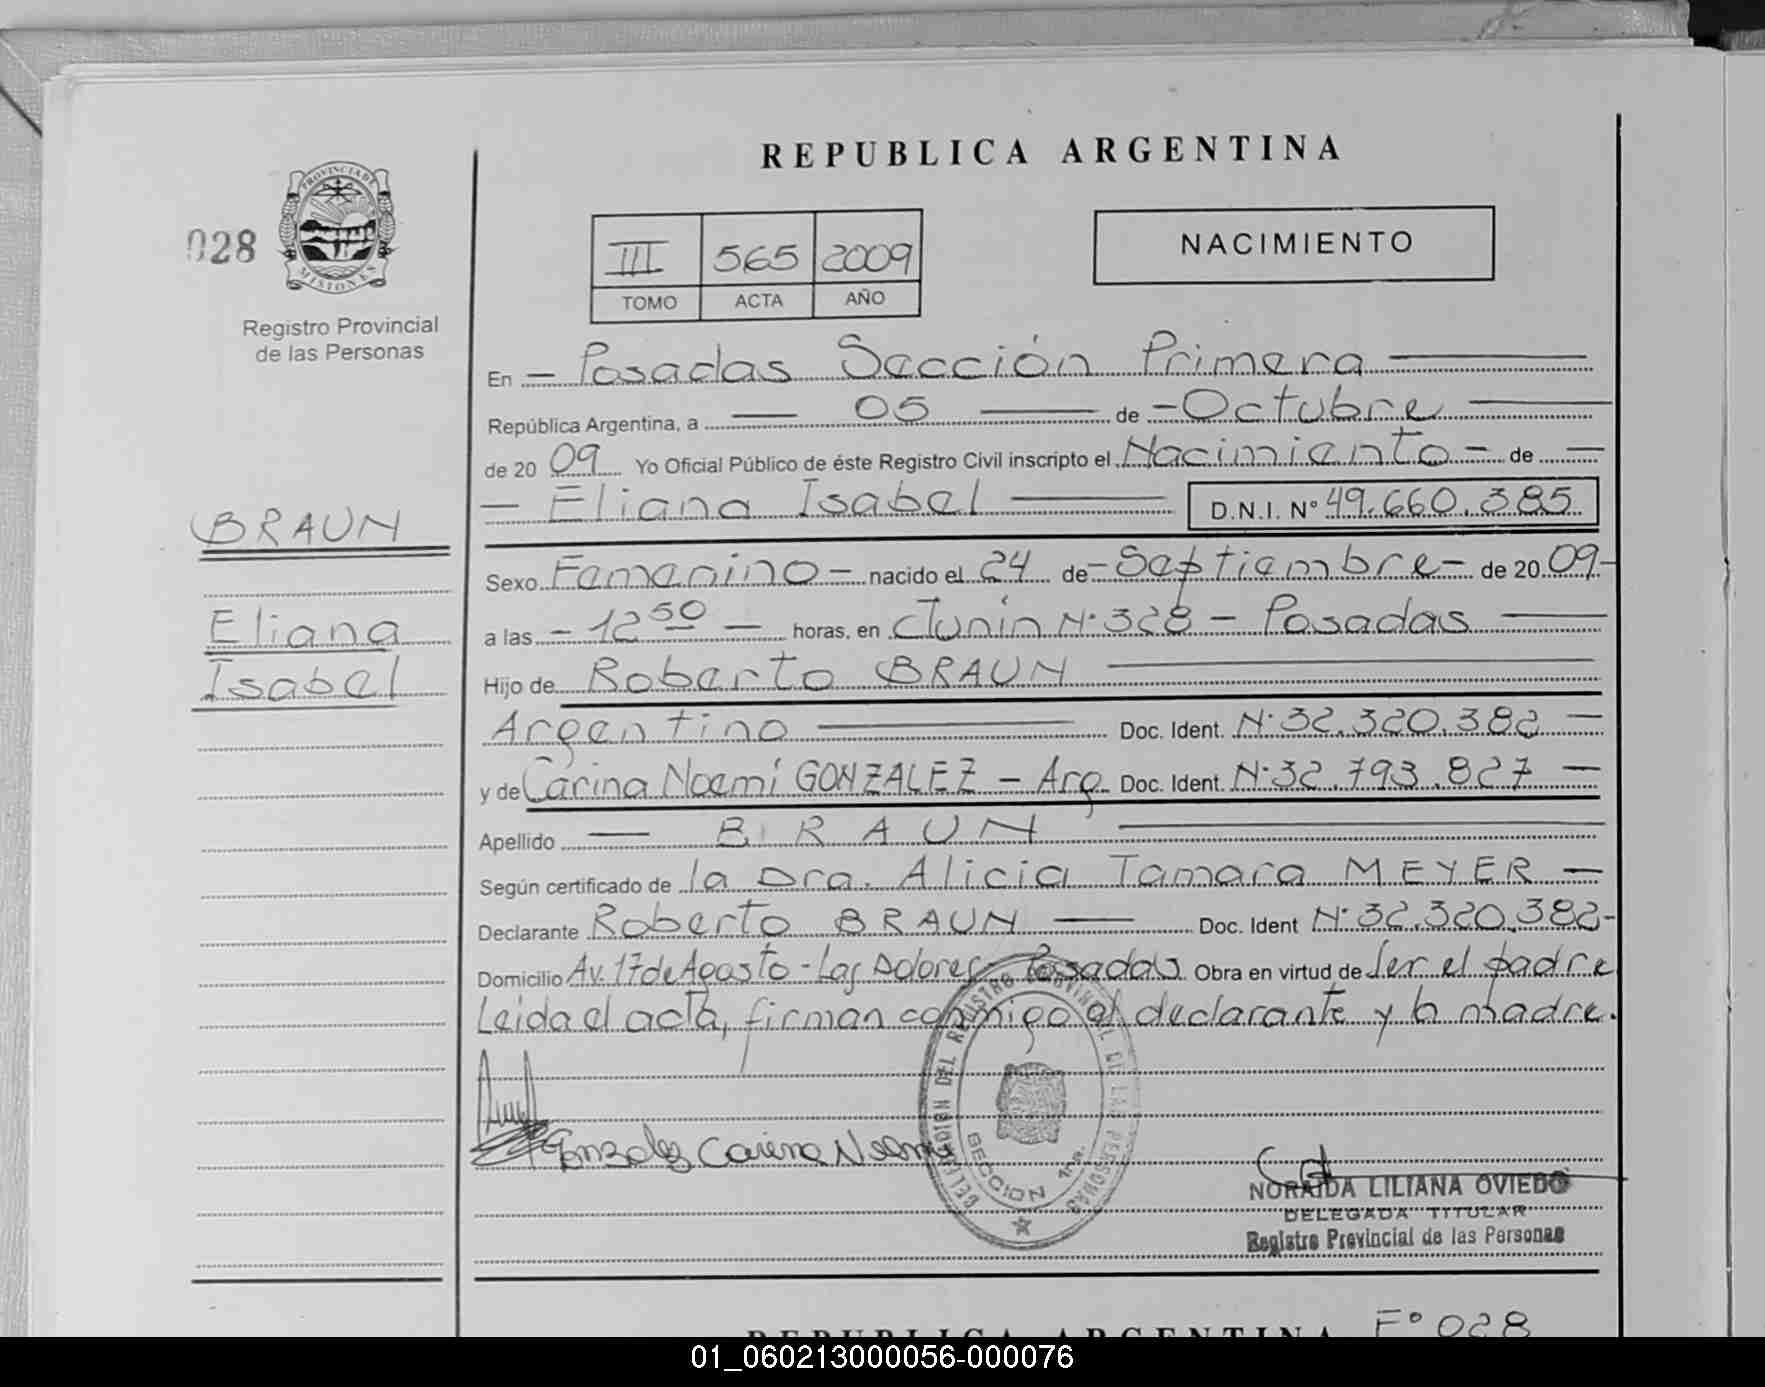 REPUBLICA ARGENTINA
028
PROVINCIA DE
MISIONES
Registro Provincial
de las Personas
III 565 2009
TOMO ACTA AÑO
NACIMIENTO
En - Posadas Sección Primera
República Argentina, a 05 de - Octubre
de 20 09 Yo Oficial Público de éste Registro Civil inscripto el Nacimiento - de -
- Eliana Isabel D.N.I. N° 49.660.385
BRAUN
Eliana
Isabel
Sexo Femenino - nacido el 24 de - Septiembre - de 20 09 -
a las - 12 50 - horas, en Junín N° 328 - Posadas
Hijo de Roberto BRAUN
Argentino Doc. Ident. N° 32.320.382 -
y de Carina Noemí GONZALEZ - Arg. Doc. Ident. N° 32.793.827 -
Apellido - BRAUN
Según certificado de la Dra. Alicia Tamara MEYER -
Declarante Roberto BRAUN - Doc. Ident N° 32.320.382 -
Domicilio Av. 17 de Agosto - Las Dolores - Posadas Obra en virtud de ser el padre
Leida el acta, firman conmigo el declarante y la madre.
Gonzalez Carina Noemi
DELEGACION DEL REGISTRO PROVINCIAL DE LAS PERSONAS
SECCION 1ra.
NORAIDA LILIANA OVIEDO
DELEGADA TITULAR
Registro Provincial de las Personas
F° 028
REPUBLICA ARGENTINA
01_060213000056-000076